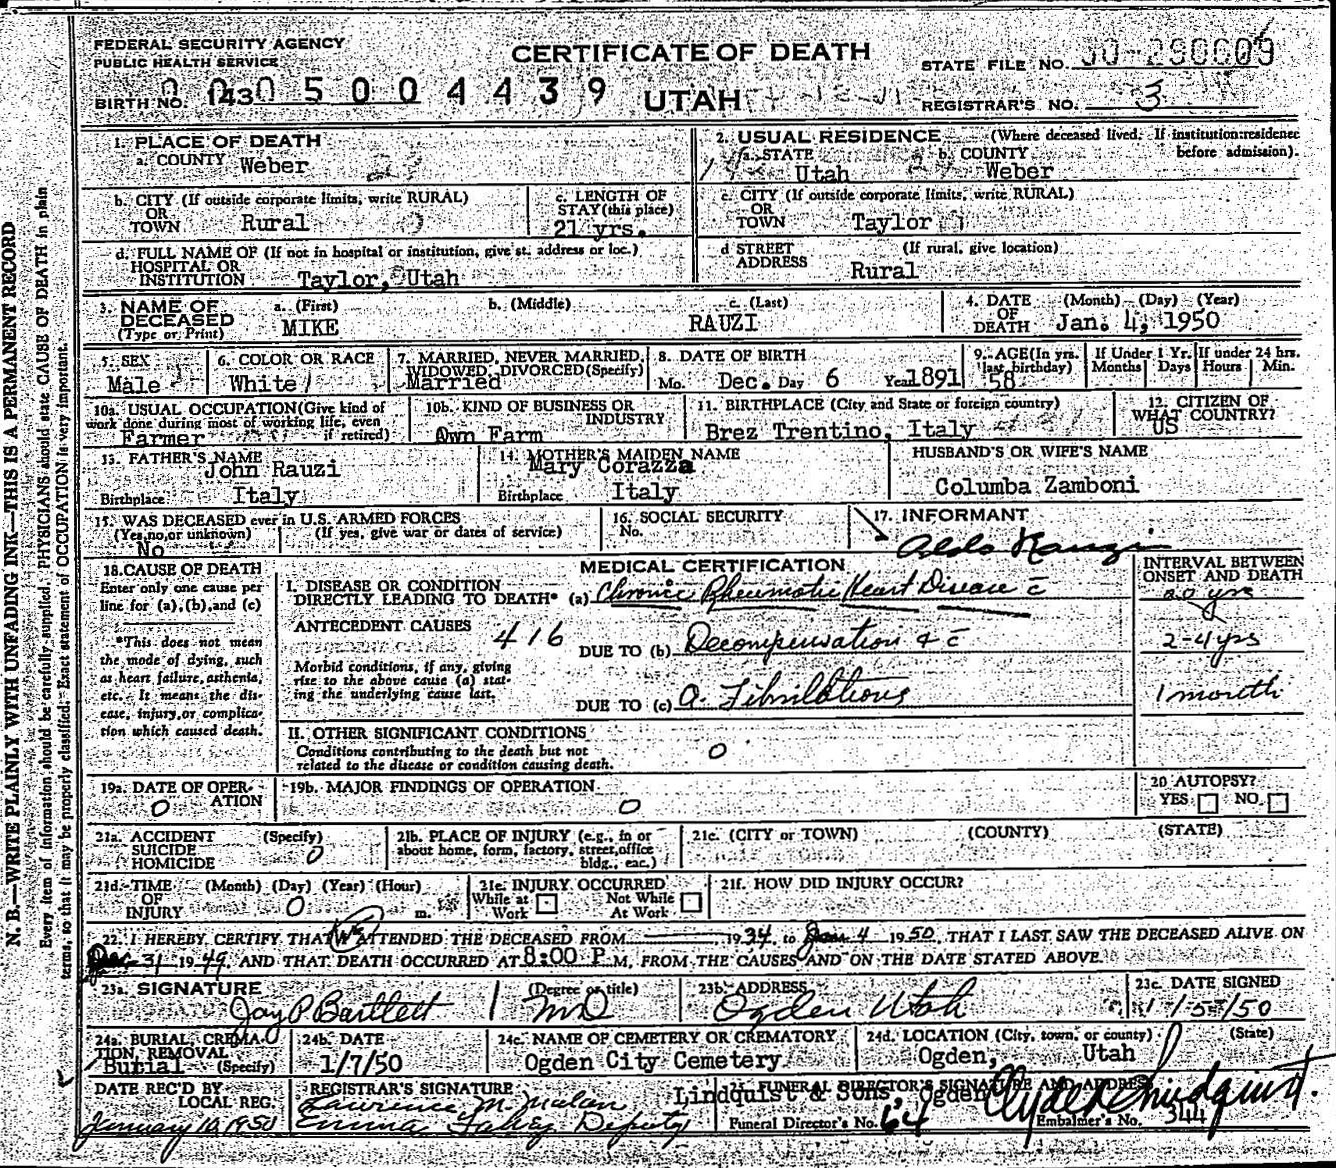 FEDERAL SECURITY AGENCY
PUBLIC HEALTH SERVICE
CERTIFICATE OF DEATH
STATE FILE NO.
BIRTH NO. 143 0 5 0 0 4 4 3 9
UTAH
REGISTRAR'S NO. 3
1. PLACE OF DEATH
a. COUNTY Weber
2. USUAL RESIDENCE (Where deceased lived. If institution: residence before admission).
a. STATE Utah b. COUNTY Weber
b. CITY (If outside corporate limits, write RURAL) OR TOWN Rural
c. LENGTH OF STAY (this place) 21 yrs.
c. CITY (If outside corporate limits, write RURAL) OR TOWN Taylor
d. FULL NAME OF (If not in hospital or institution, give st. address or loc.) HOSPITAL OR INSTITUTION Taylor, Utah
d STREET ADDRESS (If rural, give location) Rural
3. NAME OF DECEASED (Type or Print)
a. (First) MIKE
b. (Middle)
c. (Last) RAUZI
4. DATE OF DEATH (Month) (Day) (Year) Jan. 4, 1950
5. SEX Male
6. COLOR OR RACE White
7. MARRIED, NEVER MARRIED, WIDOWED, DIVORCED (Specify) Married
8. DATE OF BIRTH Mo. Dec. Day 6 Year 1891
9. AGE (In yrs. last birthday) 58
If Under 1 Yr. Months Days
If under 24 hrs. Hours Min.
10a. USUAL OCCUPATION (Give kind of work done during most of working life, even if retired) Farmer
10b. KIND OF BUSINESS OR INDUSTRY Own Farm
11. BIRTHPLACE (City and State or foreign country) Brez Trentino, Italy
12. CITIZEN OF WHAT COUNTRY? US
13. FATHER'S NAME John Rauzi
Birthplace Italy
14. MOTHER'S MAIDEN NAME Mary Corazza
Birthplace Italy
HUSBAND'S OR WIFE'S NAME
Columba Zamboni
15. WAS DECEASED ever in U.S. ARMED FORCES
(Yes, no, or unknown) (If yes, give war or dates of service)
No
16. SOCIAL SECURITY No.
17. INFORMANT
Aldo Rauzi
18. CAUSE OF DEATH
Enter only one cause per line for (a), (b), and (c)
*This does not mean the mode of dying, such as heart failure, asthenia, etc. It means the disease, injury, or complication which caused death.
MEDICAL CERTIFICATION
INTERVAL BETWEEN ONSET AND DEATH
I. DISEASE OR CONDITION DIRECTLY LEADING TO DEATH* (a) Chronic Rheumatic Heart Disease c̄
20 yrs
ANTECEDENT CAUSES 416
DUE TO (b) Decompensation & c̄
2-4 yrs
Morbid conditions, if any, giving rise to the above cause (a) stating the underlying cause last.
DUE TO (c) A. Fibrillations
1 month
II. OTHER SIGNIFICANT CONDITIONS
Conditions contributing to the death but not related to the disease or condition causing death.
0
19a. DATE OF OPERATION 0
19b. MAJOR FINDINGS OF OPERATION 0
20 AUTOPSY?
YES NO
21a. ACCIDENT SUICIDE HOMICIDE (Specify) 0
21b. PLACE OF INJURY (e.g., in or about home, form, factory, street, office bldg., eac.)
21c. (CITY or TOWN) (COUNTY) (STATE)
21d. TIME OF INJURY (Month) (Day) (Year) (Hour) m.
0
21e. INJURY OCCURRED
While at Work Not While At Work
21f. HOW DID INJURY OCCUR?
22. I HEREBY CERTIFY THAT We ATTENDED THE DECEASED FROM 1934, to Jan 4 1950, THAT I LAST SAW THE DECEASED ALIVE ON
Dec 31 1949, AND THAT DEATH OCCURRED AT 8:00 P.M, FROM THE CAUSES AND ON THE DATE STATED ABOVE.
23a. SIGNATURE (Degree or title)
Jay P Bartlett MD
23b. ADDRESS
Ogden Utah
23c. DATE SIGNED
1/5/50
24a. BURIAL, CREMATION, REMOVAL (Specify) Burial
24b. DATE
1/7/50
24c. NAME OF CEMETERY OR CREMATORY
Ogden City Cemetery
24d. LOCATION (City, town, or county) (State)
Ogden, Utah
DATE REC'D BY LOCAL REG.
January 10, 1950
REGISTRAR'S SIGNATURE
Lawrence M. Malan
Emma Fahey Deputy
25. FUNERAL DIRECTOR'S SIGNATURE AND ADDRESS
Lindquist & Sons, Ogden Clyde Lindquist.
Funeral Director's No. 64
Embalmer's No. 344
N. B.—WRITE PLAINLY WITH UNFADING INK—THIS IS A PERMANENT RECORD
Every item of information should be carefully supplied. PHYSICIANS should state CAUSE OF DEATH in plain
terms, so that it may be properly classified. Exact statement of OCCUPATION is very important.